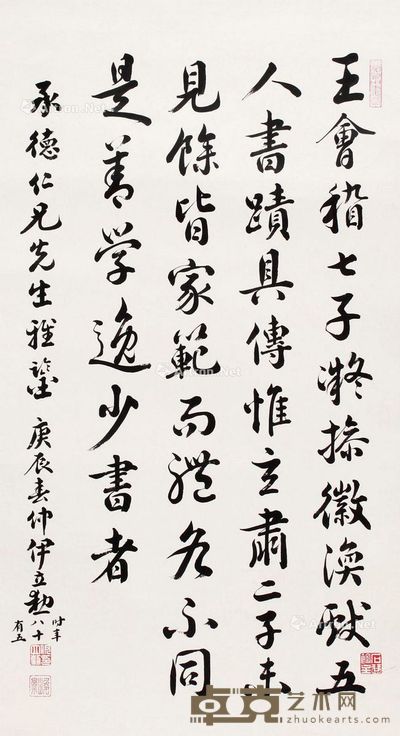 王會稽七子凝操徽渙獻五
人書蹟具傳惟玄肅二子未
見餘皆家範而體各不同
是善學逸少書者
承德仁兄先生雅鑒 庚辰春仲伊立勳時年八十有五
卓克艺术网
zhuokearts.com